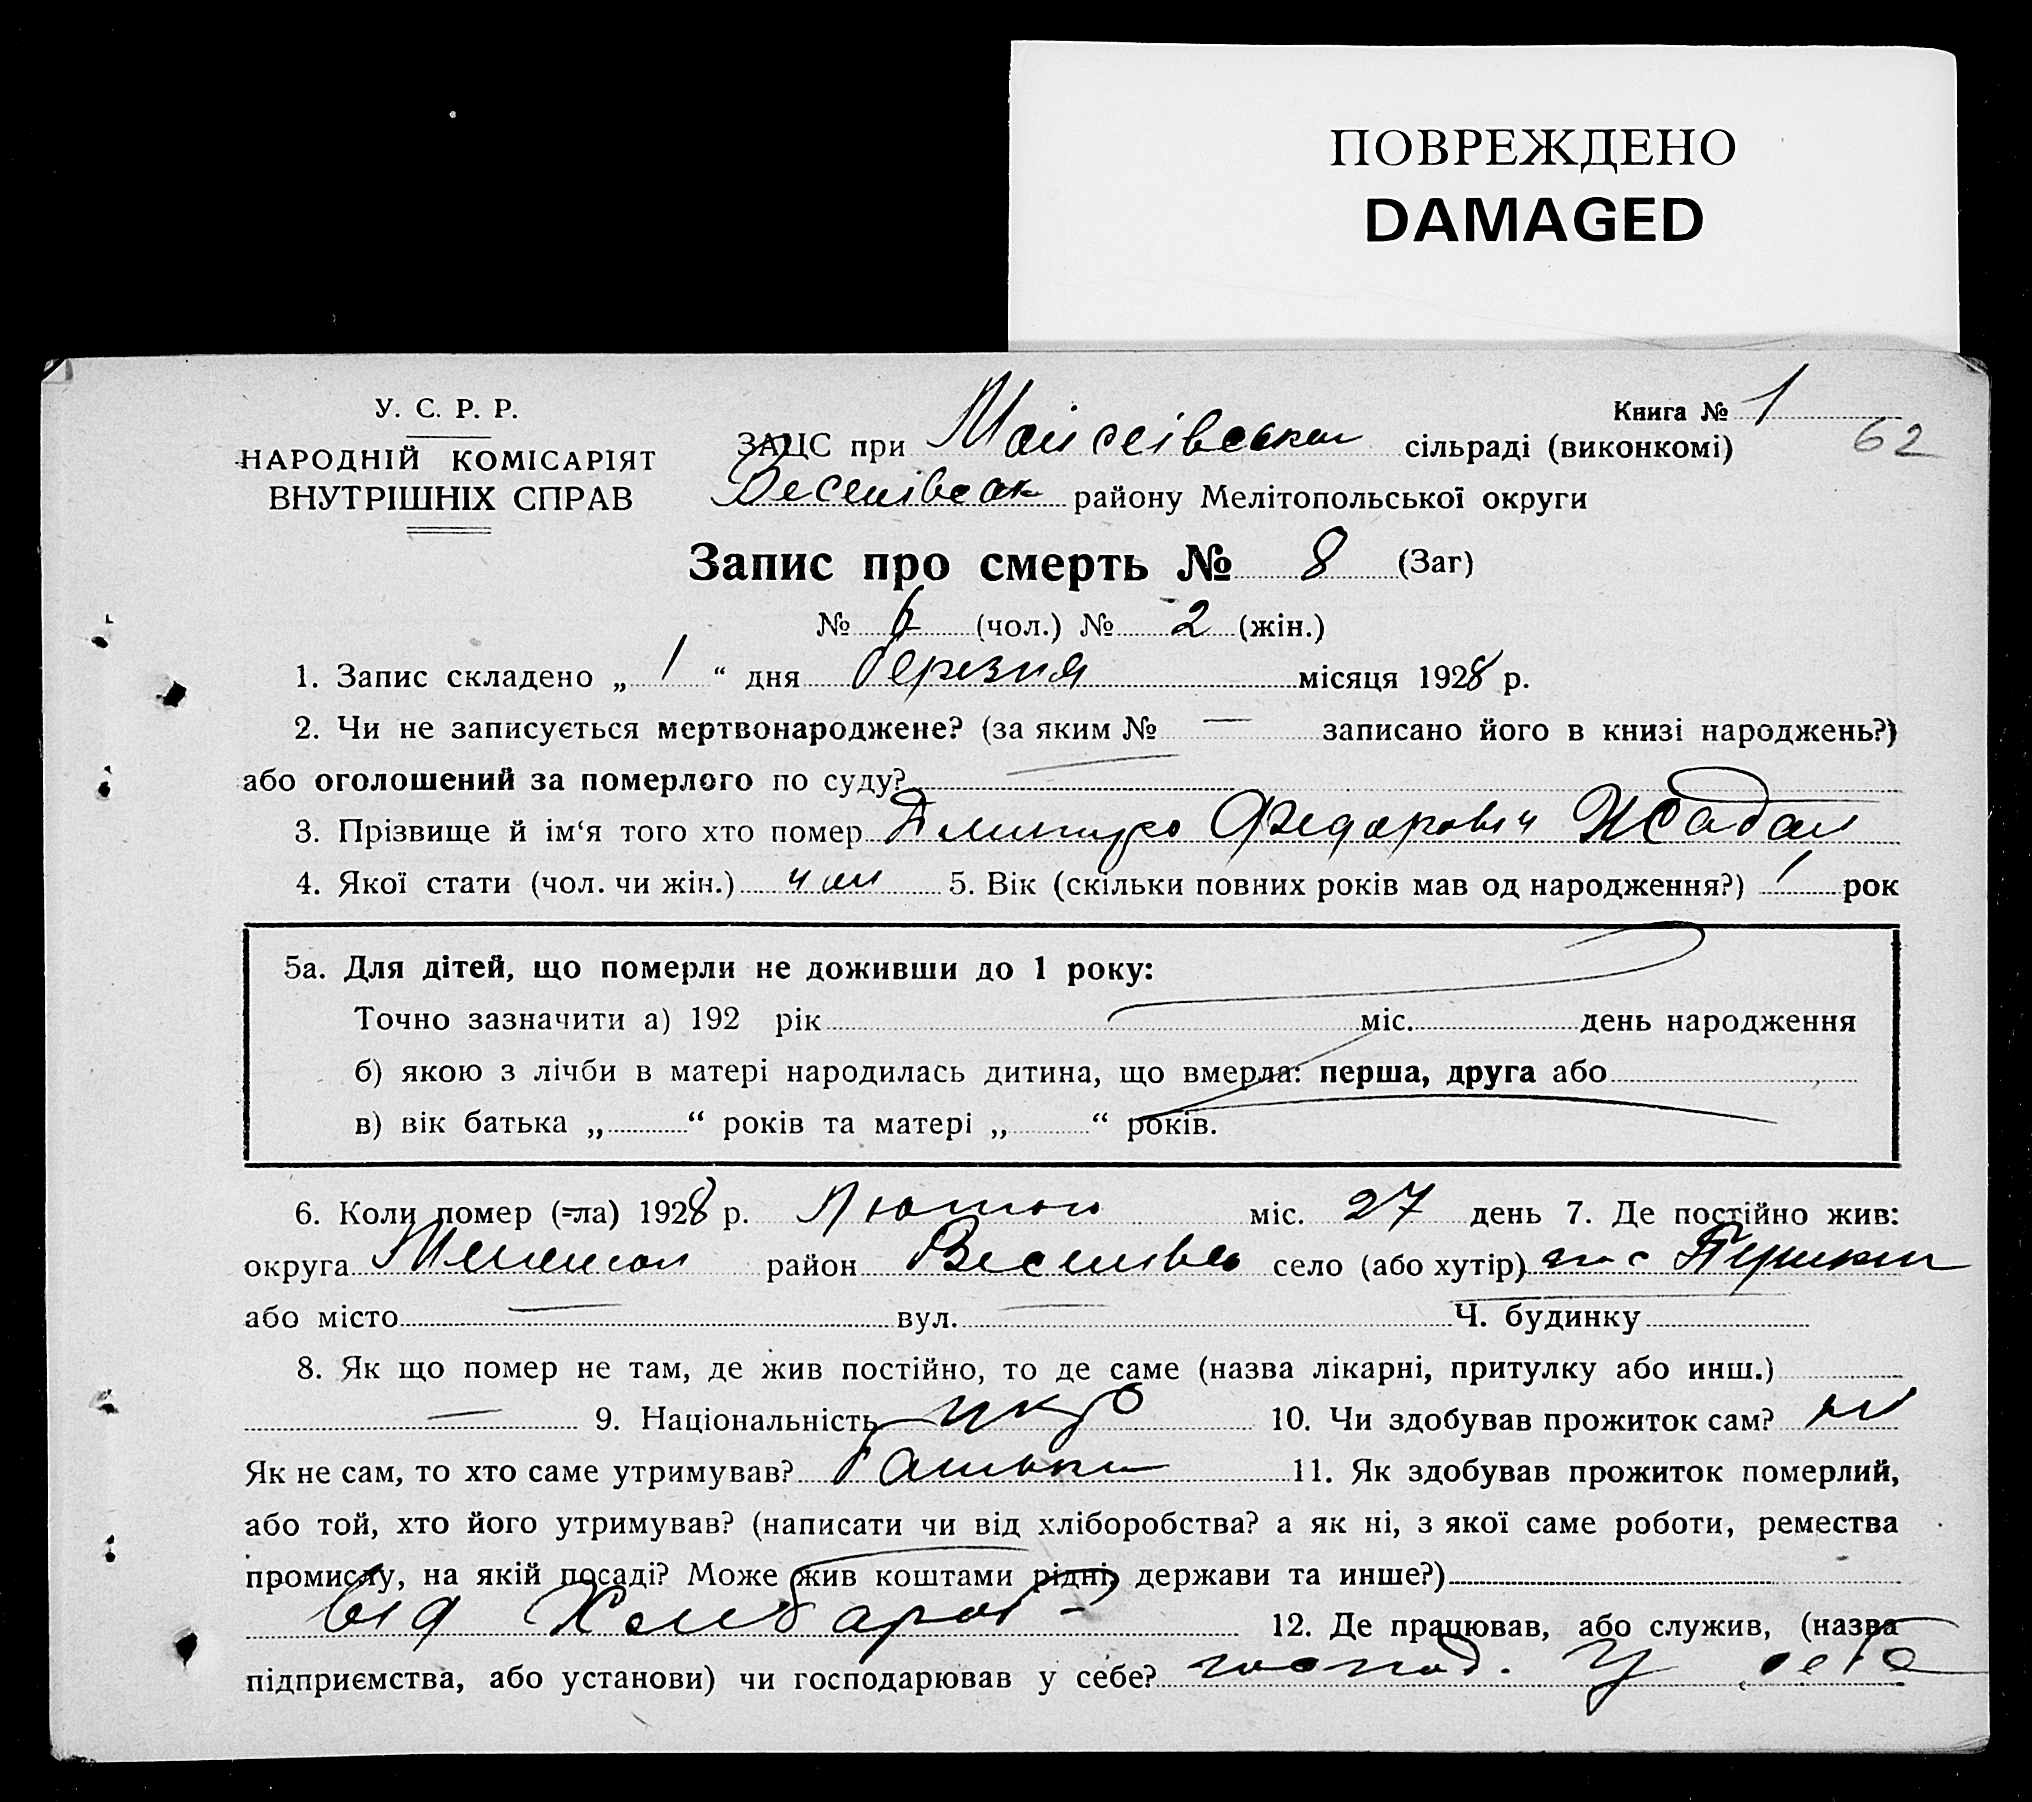 ПОВРЕЖДЕНО
DAMAGED
У. С. Р. Р.
НАРОДНІЙ КОМІСАРІЯТ
ВНУТРІШНІХ СПРАВ
Книга № 1
62
ЗАЦС при Моисеівськ сільраді (виконкомі)
Веселівськ району Мелітопольської округи
Запис про смерть № 8 (Заг)
№ 6 (чол.) № 2 (жін.)
1. Запис складено „ 1 “ дня березня місяця 1928 р.
2. Чи не записується мертвонароджене? (за яким № — записано його в книзі народжень?)
або оголошений за померлого по суду? —
3. Прізвище й ім‘я того хто помер Дмитро Федорович Жадан
4. Якої стати (чол. чи жін.) чол 5. Вік (скільки повних років мав од народження?) 1 рок
5а. Для дітей, що померли не доживши до 1 року:
Точно зазначити а) 192 рік міс. день народження
б) якою з лічби в матері народилась дитина, що вмерла: перша, друга або
в) вік батька „ “ років та матері „ “ років.
6. Коли помер (=ла) 1928 р. Лютого міс. 27 день 7. Де постійно жив:
округа Мелитоп район Веселівсь село (або хутір)
або місто — вул. — Ч. будинку
8. Як що помер не там, де жив постійно, то де саме (назва лікарні, притулку або инш.)
— 9. Національність укр 10. Чи здобував прожиток сам? ні
Як не сам, то хто саме утримував? Батьки 11. Як здобував прожиток померлий,
або той, хто його утримував? (написати чи від хліборобства? а як ні, з якої саме роботи, ремества
промислу, на якій посаді? Може жив коштами рідні, держави та инше?)
від Хлібороб 12. Де працював, або служив, (назва
підприємства, або установи) чи господарював у себе? господ. У себе